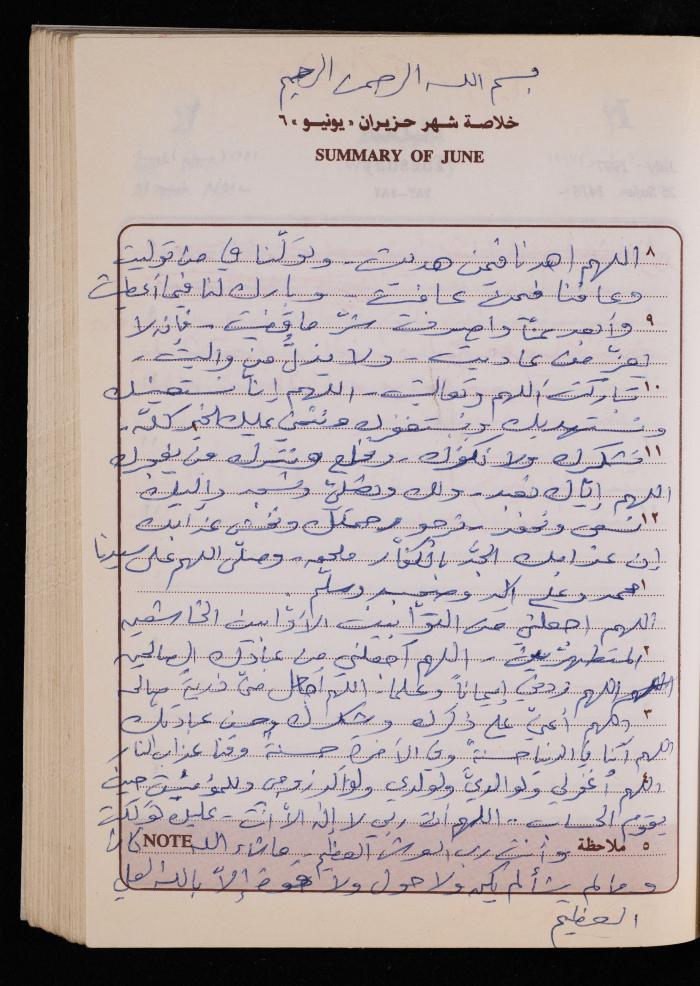 بسم الله الرحمن الرحيم
خلاصة شهر حزيران «يونيو» ٦
SUMMARY OF JUNE
٨ اللهم اهدنا فيمن هديت - وتولّنا في من توليت
وعافنا فيمن عافيت - وبارك لنا فيما أعطيت
٩ وأبعد عنّا واصرف شرّ ما قضيت - فإنه لا
يعزّ من عاديت - ولا يذلّ من واليت -
١٠ تباركت اللهم وتعاليت - اللهم إنا نستعينك
ونستهديك ونستغفرك ونثني عليك الخير كلّه -
١١ نشكرك ولا نكفرك - ونخلع ونترك من يفجرك
اللهم إيّاك نعبد - ولك ونصلّي ونسجد وإليك
١٢ نسعى ونحفد - نرجو رحمتك ونخشى عذابك
إن عذابك الجدّ بالكفّار ملحق - وصلّي اللهم على سيدنا
١ محمد وعلى آله وصحبه وسلّم .
اللهم اجعلني من التوّابين الأوّابين الخاشعين
٢ المتطهرين - اللهم اجعلني من عبادك الصالحين
اللهم زدني إيماناً وعلما اللهم اجعل منّي ذرية صالحه
٣ اللهم أعنّي على ذكرك وشكرك وحسن عبادتك
اللهم آتنا في الدنيا حسنة وفي الآخرة حسنة وقنا عذاب النار
٤ اللهم أغفر لي ولوالديّ ولولدي ولوالد زوجي وللمؤمنين حين
يقوم الحساب .. اللهم انت ربي لا إله الا أنت - عليك توكلت
٥ ملاحظة وأنت رب العرش العظيم - ما شاء الله كان NOTE
وما لم يشأ لم يكن ولا حول ولا قوة إلاّ بالله العلي
العظيم